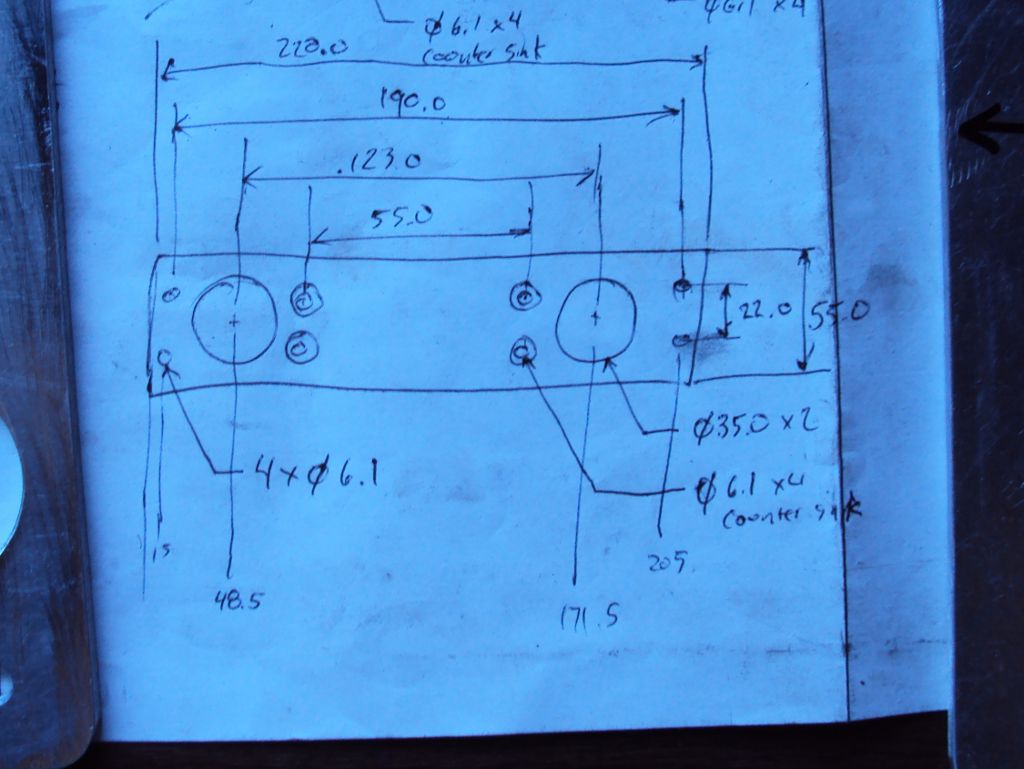 φ6.1 x4
counter sink
φ6.1 x4
220.0
190.0
123.0
55.0
22.0
55.0
φ35.0 x2
4xφ6.1
φ6.1 x4
counter sink
15
205
48.5
171.5